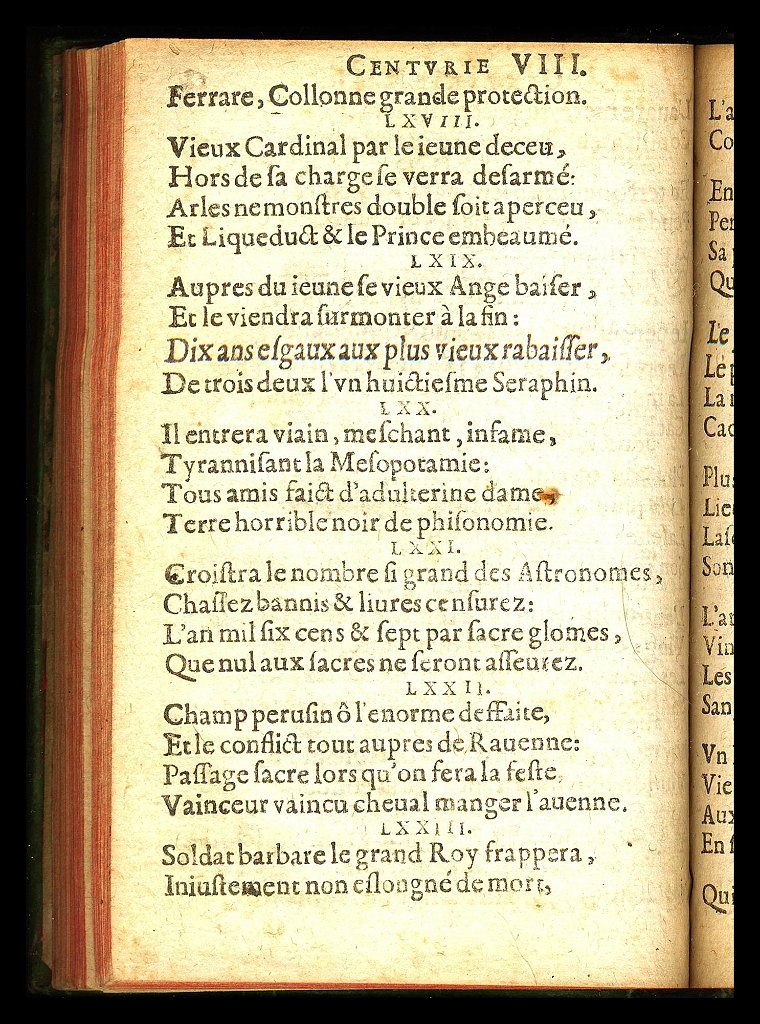 CENTVRIE VIII.
Ferrare, Collonne grande protection.
LXVIII.
Vieux Cardinal par le ieune deceu,
Hors de ſa charge ſe verra deſarmé:
Arles ne monſtres double ſoit aperceu,
Et Liqueduct & le Prince embeaumé.
LXIX.
Aupres du ieune ſe vieux Ange baiſer,
Et le viendra ſurmonter à la fin:
Dix ans eſgaux aux plus vieux rabaiſſer,
De trois deux l'vn huictieſme Seraphin.
LXX.
Il entrera viain, meſchant, infame,
Tyranniſant la Meſopotamie:
Tous amis faict d'adulterine dame,
Terre horrible noir de phiſonomie.
LXXI.
Croiſtra le nombre ſi grand des Aſtronomes,
Chaſſez bannis & liures cenſurez:
L'an mil ſix cens & ſept par ſacre glomes,
Que nul aux ſacres ne ſeront aſſeurez.
LXXII.
Champ peruſin ô l'enorme deffaite,
Et le conflict tout aupres de Rauenne:
Paſſage ſacre lors qu'on fera la feſte,
Vainceur vaincu cheual manger l'auenne.
LXXIII.
Soldat barbare le grand Roy frappera,
Iniuſtement non eſlongné de mort,
L'a
Co
En
Per
Sa
Qu
Le
Lé
La
Cac
Plus
Lie
Laſ
Son
L'a
Vin
Les
San
Vn
Vie
Aux
En
Qui